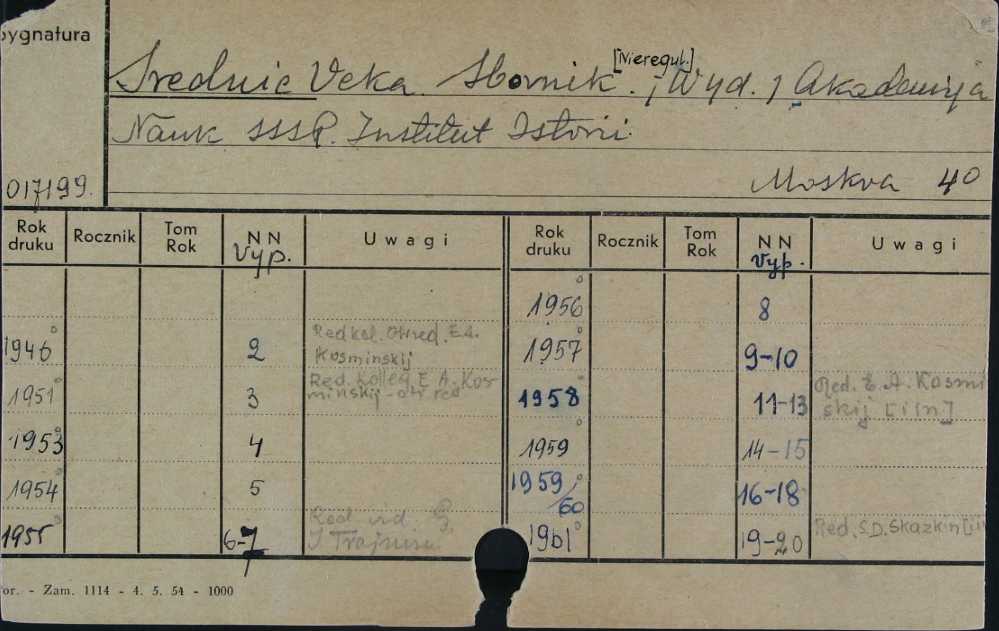 Sygnatura
[Nieregul.]
Srednie Veka. Sbornik. [Wyd.] Akademija
Nauk SSSR. Institut Istorii.
017199.
Moskva 4°
Rok druku Rocznik Tom Rok NN Vyp. Uwagi Rok druku Rocznik Tom Rok NN Vyp. Uwagi
1956° 8
1946° 2 Red kol. Otv red. E.A. Kosminskij 1957° 9-10
1951° 3 Red. Kolleg E. A. Kosminskij - otv red 1958° 11-13 Red. E. A. Kosminskij [i in]
1953° 4 1959° 14-15
1954° 5 1959/60° 16-18
1955° 6-7 Red 1961° 19-20 Red. S.D. Skazkin [i in
or. - Zam. 1114 - 4. 5. 54 - 1000